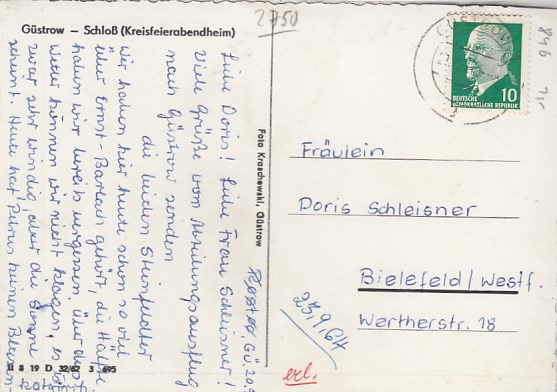 Güstrow – Schloß (Kreisfeierabendheim)
2750
Liebe Doris! Liebe Frau Schleisner!
Viele Grüße vom Abteilungsausflug
nach Güstrow senden
die beiden
Wir haben hier heute schon so viel
über Ernst-Barlach gehört, die Hälfte
haben wir bereits vergessen. Über das
Wetter können wir nicht klagen, es ist
zwar sehr windig, aber die Sonne
scheint. Heute hat Petrus keinen
Foto Kraschewski, Güstrow
II 8 19 D 32/62 3 695
10
DEUTSCHE
DEMOKRATISCHE REPUBLIK
Fräulein
Doris Schleisner
Bielefeld/Westf.
Wertherstr. 18
23.9.64
erl.